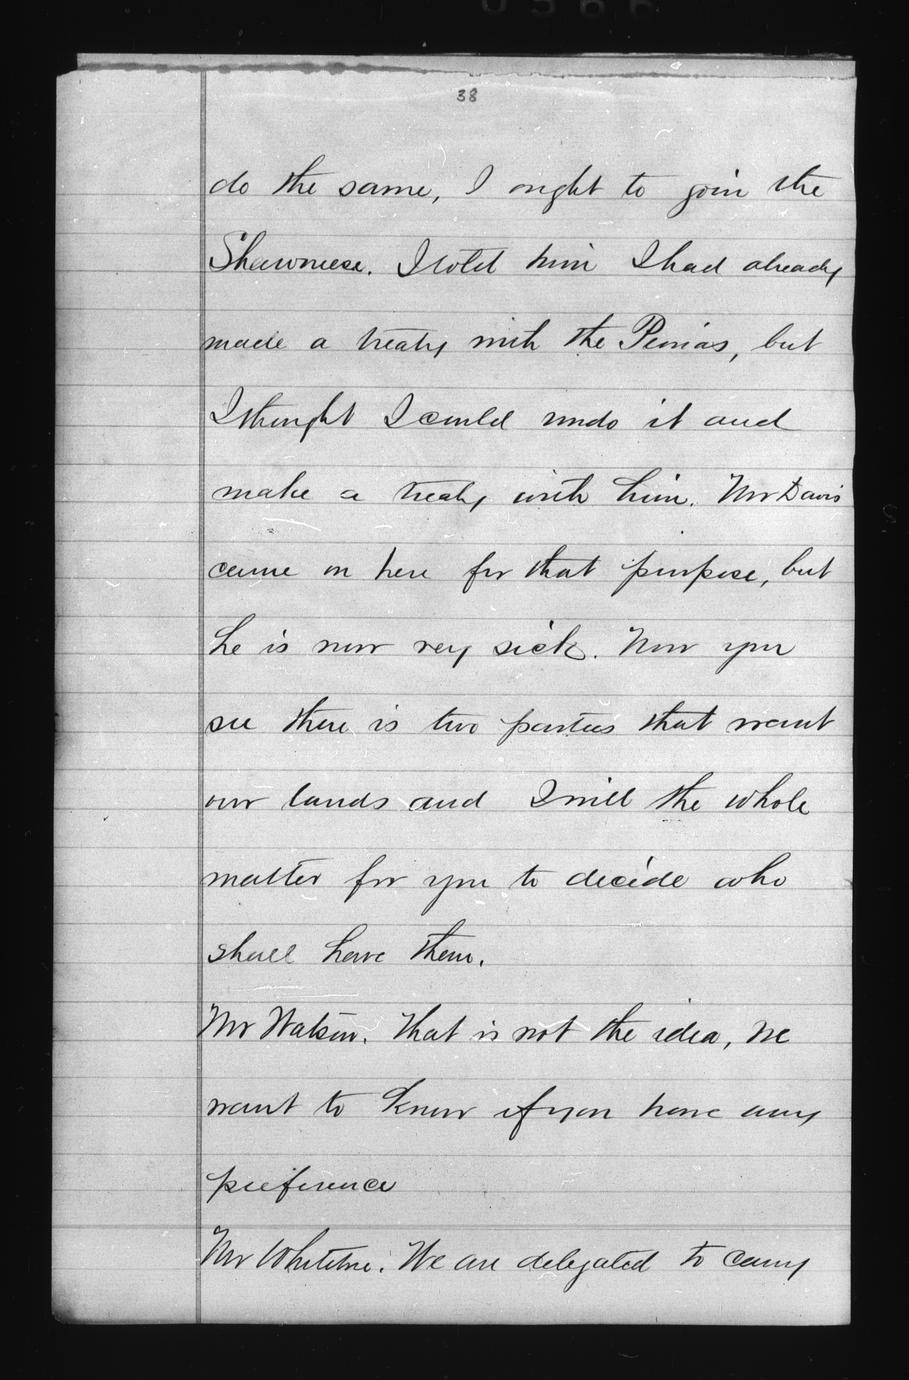 38
do the same, I ought to join the
Shawneese. I told him I had already
made a treaty with the Peorias, but
I thought I could undo it and
make a treaty with him. Mr Davis
came on here for that purpose, but
he is now very sick. Now you
see there is two parties that want
our lands and I will the whole
matter for you to decide who
shall have them.
Mr Watson. That is not the idea, we
want to know if you have any
preference
Mr Whitetree. We are delegated to carry